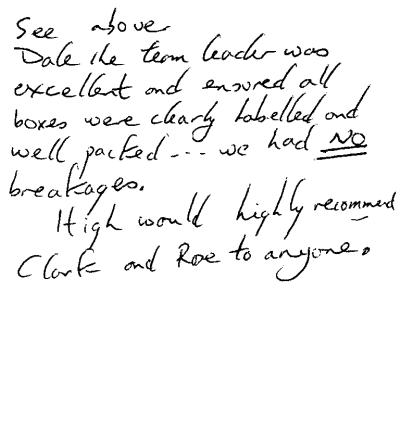 See above
Dale the team leader was
excellent and ensured all
boxes were clearly labelled and
well packed --- we had NO
breakages.
High would highly recommend
Clark and Rose to anyone.